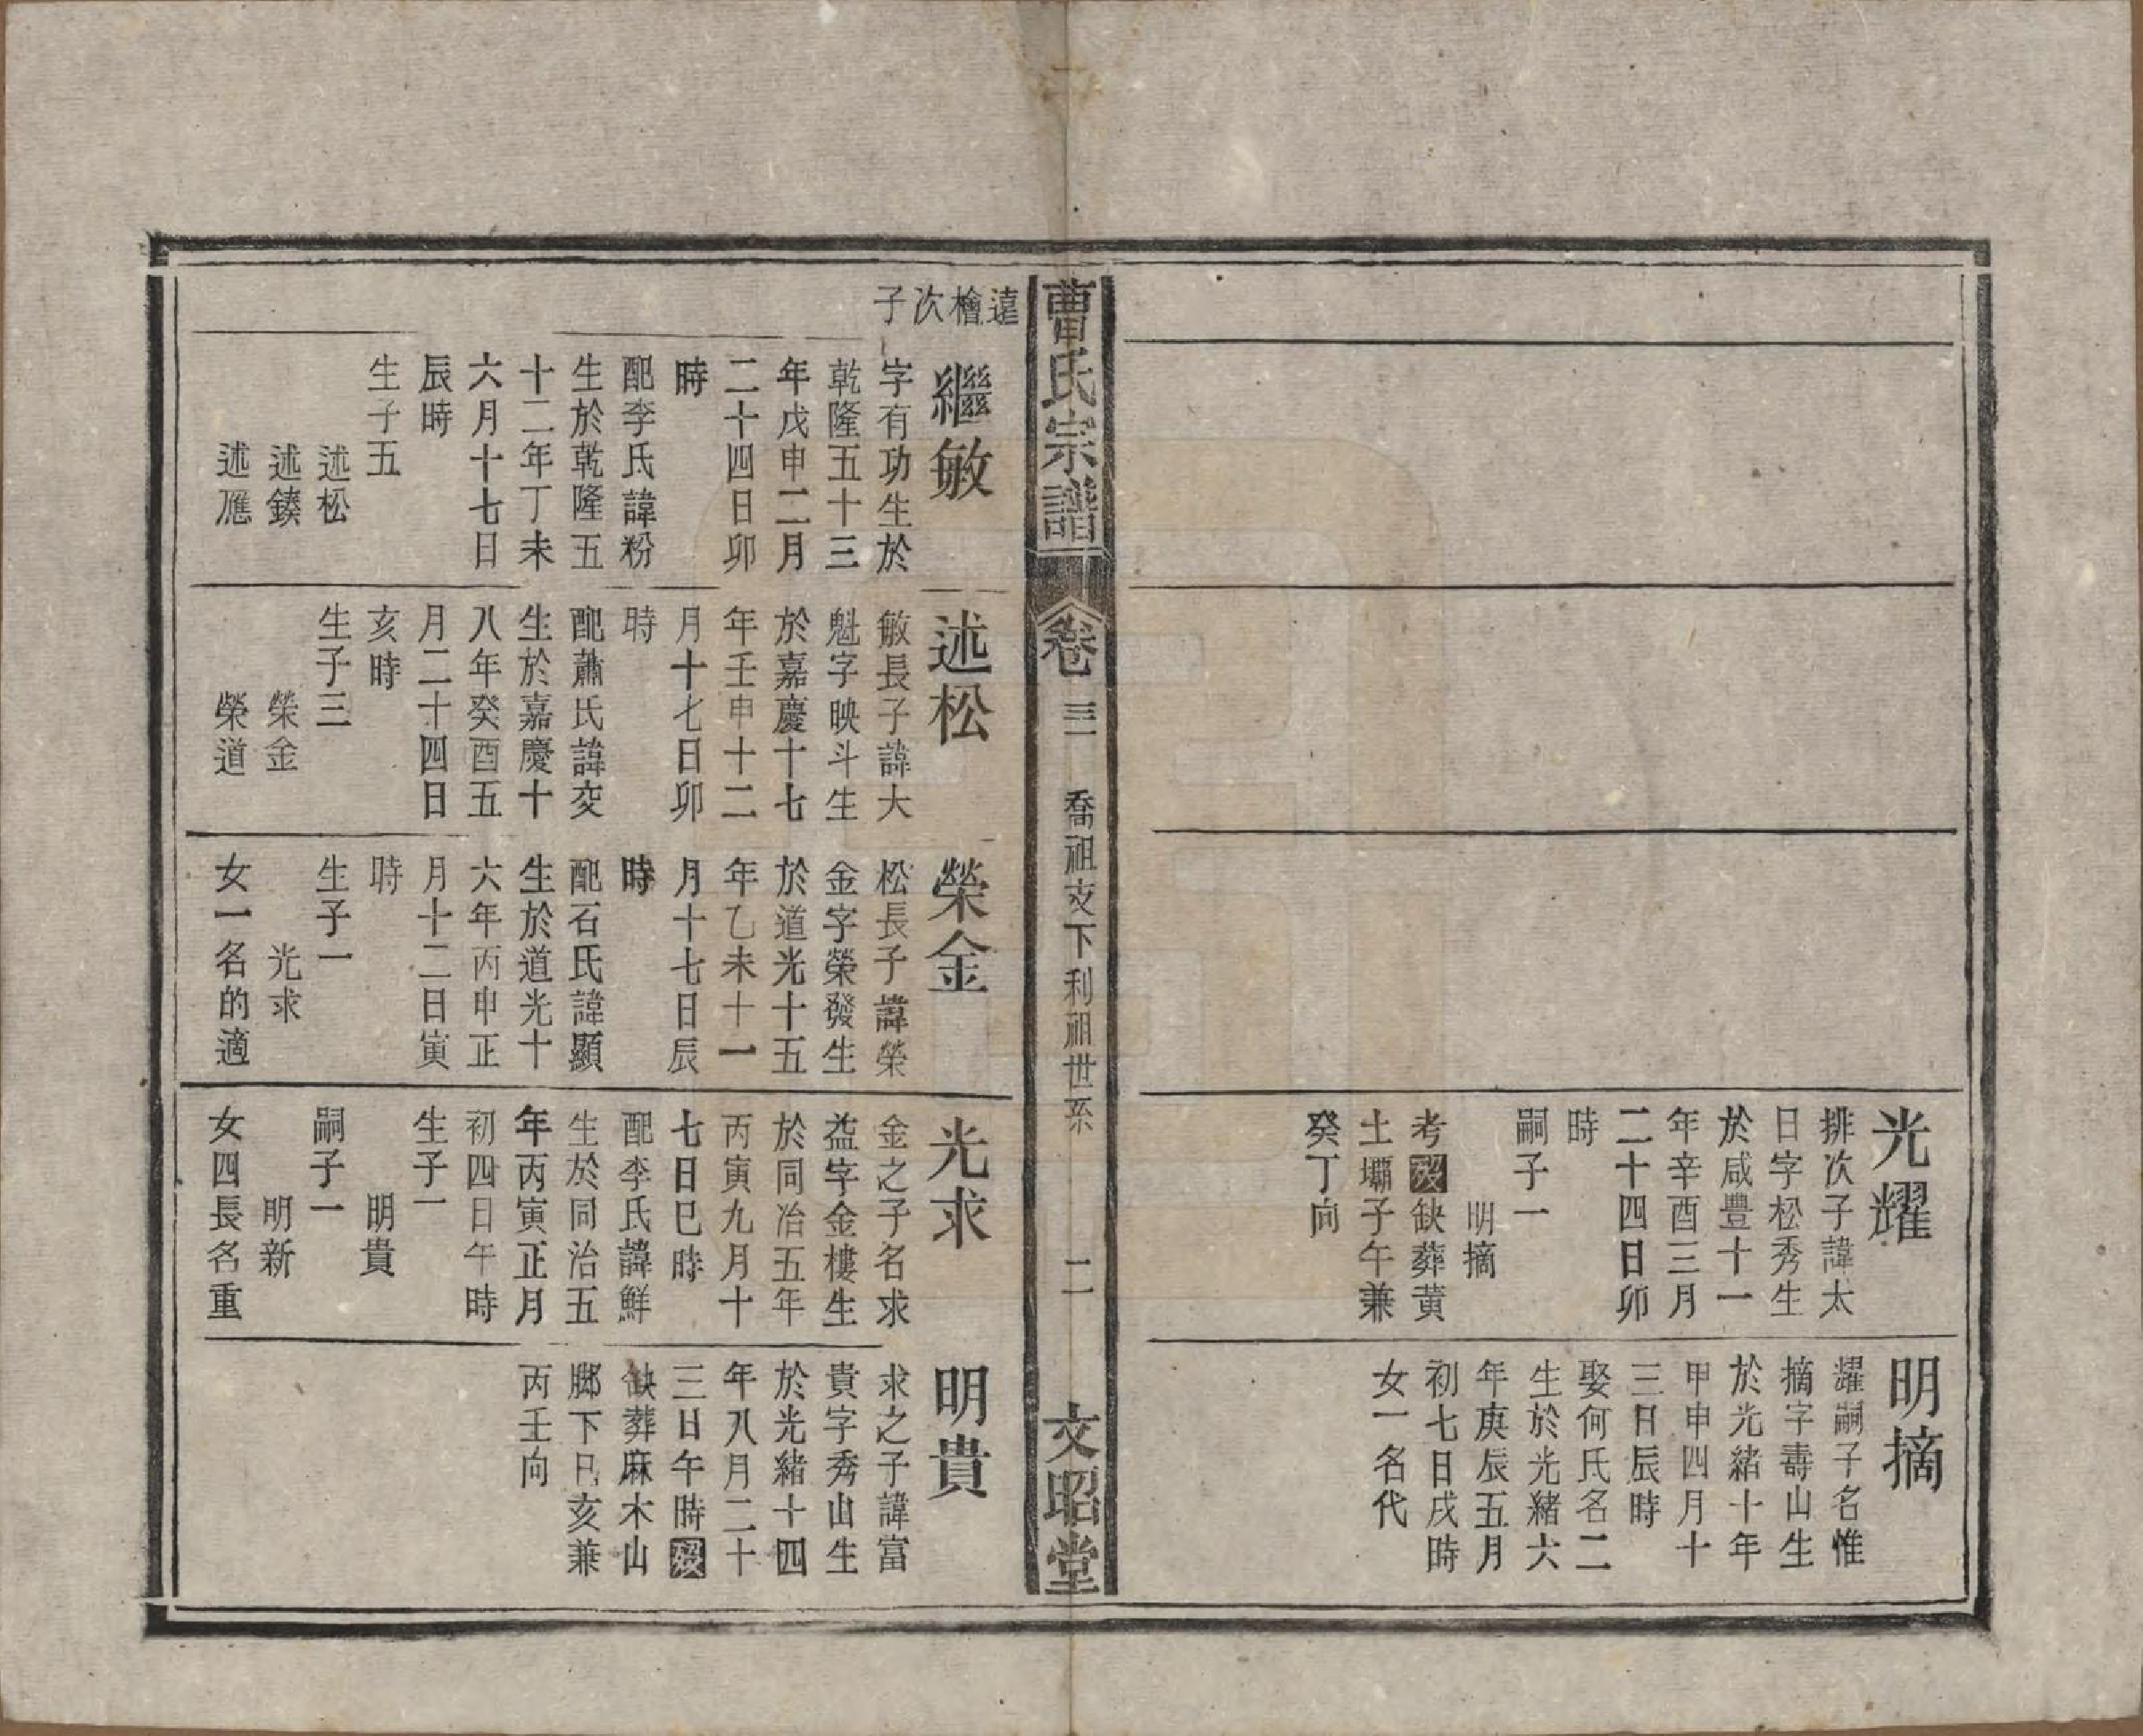 光耀
排次子諱太
日字松秀生
於咸豐十一
年辛酉三月
二十四日卯
時
嗣子一
明摘
考歿缺葬黃
土壩子午兼
癸丁向
明摘
耀嗣子名惟
摘字壽山生
於光緒十年
甲申四月十
三日辰時
娶何氏名二
生於光緒六
年庚辰五月
初七日戌時
女一名代
曹氏宗譜
卷三
喬祖支下利祖世系
二
文昭堂
遠檜次子
繼敏
字有功生於
乾隆五十三
年戊申二月
二十四日卯
時
配李氏諱粉
生於乾隆五
十二年丁未
六月十七日
辰時
生子五
述松
述鍨
述應
述松
敏長子諱大
魁字映斗生
於嘉慶十七
年壬申十二
月十七日卯
時
配蕭氏諱交
生於嘉慶十
八年癸酉五
月二十四日
亥時
生子三
榮金
榮道
榮金
松長子諱榮
金字榮發生
於道光十五
年乙未十一
月十七日辰
時
配石氏諱顯
生於道光十
六年丙申正
月十二日寅
時
生子一
光求
女一名的適
光求
金之子名求
益字金樓生
於同治五年
丙寅九月十
七日巳時
配李氏諱鮮
生於同治五
年丙寅正月
初四日午時
生子一
明貴
嗣子一
明新
女四長名重
明貴
求之子諱富
貴字秀山生
於光緒十四
年八月二十
三日午時歿
缺葬麻木山
腳下巳亥兼
丙壬向